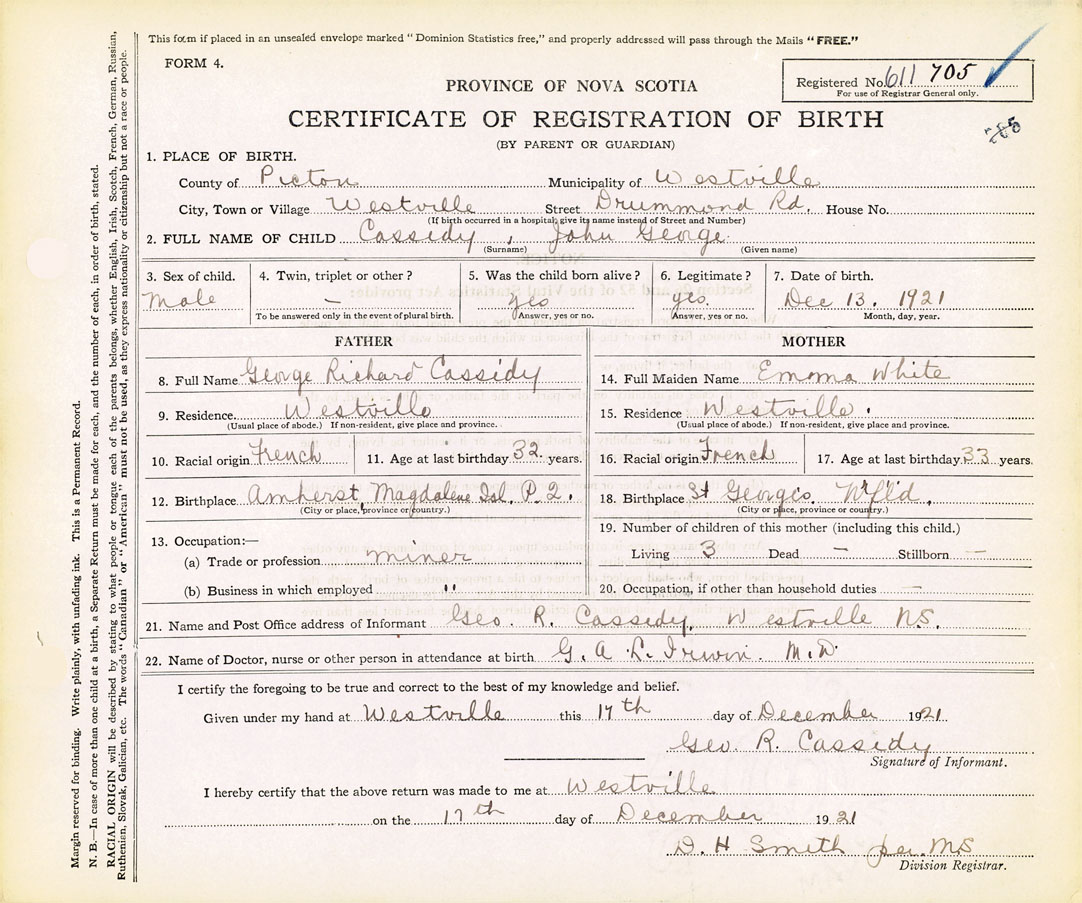 This form if placed in an unsealed envelope marked "Dominion Statistics free," and properly addressed will pass through the Mails "FREE."
FORM 4.
Registered No. 611 705
For use of Registrar General only.
PROVINCE OF NOVA SCOTIA
CERTIFICATE OF REGISTRATION OF BIRTH
(BY PARENT OR GUARDIAN)
1. PLACE OF BIRTH.
County of Picton Municipality of Westville
City, Town or Village Westville Street Drummond Rd. House No.
(If birth occurred in a hospital, give its name instead of Street and Number)
2. FULL NAME OF CHILD Cassidy, John George
(Surname) (Given name)
3. Sex of child. 4. Twin, triplet or other? 5. Was the child born alive? 6. Legitimate? 7. Date of birth.
Male — yes yes. Dec 13. 1921
To be answered only in the event of plural birth. Answer, yes or no. Answer, yes or no. Month, day, year.
FATHER MOTHER
8. Full Name George Richard Cassidy 14. Full Maiden Name Emma White
9. Residence Westville 15. Residence Westville.
(Usual place of abode.) If non-resident, give place and province. (Usual place of abode.) If non-resident, give place and province.
10. Racial origin French 11. Age at last birthday 32 years. 16. Racial origin French 17. Age at last birthday 33 years.
12. Birthplace Amherst, Magdalene Isl. P.Q. 18. Birthplace St Georges, Nfld.
(City or place, province or country.) (City or place, province or country.)
13. Occupation:— 19. Number of children of this mother (including this child.)
(a) Trade or profession miner Living 3 Dead — Stillborn —
(b) Business in which employed " 20. Occupation, if other than household duties —
21. Name and Post Office address of Informant Geo. R. Cassidy, Westville N.S.
22. Name of Doctor, nurse or other person in attendance at birth G. A L. Irwin M.D.
I certify the foregoing to be true and correct to the best of my knowledge and belief.
Given under my hand at Westville this 17th day of December 1921.
Geo. R. Cassidy
Signature of Informant.
I hereby certify that the above return was made to me at Westville
on the 17th day of December 1921
D. H Smith per. MS
Division Registrar.
Margin reserved for binding. Write plainly, with unfading ink. This is a Permanent Record.
N. B.—In case of more than one child at a birth, a Separate Return must be made for each, and the number of each, in order of birth, stated.
RACIAL ORIGIN will be described by stating to what people or tongue each of the parents belongs, whether English, Irish, Scotch, French, German, Russian,
Ruthenian, Slovak, Galician, etc. The words "Canadian" or "American" must not be used, as they express nationality or citizenship but not a race or people.